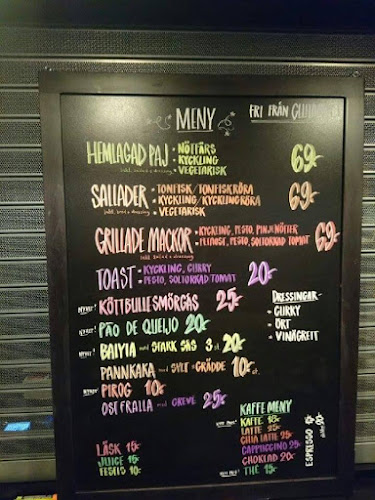 MENY
FRI FRÅN
HEMLAGAD PAJ • NÖTFÄRS
• KYCKLING
• VEGETARISK
69:-
SALLADER • TONFISK / TONFISKRÖRA
• KYCKLING / KYCKLINGRÖRA
• VEGETARISK
69:-
GRILLADE MACKOR • KYCKLING, PESTO, PINJENÖTTER
PESTO, SOLTORKAD TOMAT
69:-
TOAST • KYCKLING, CURRY
• PESTO, SOLTORKAD TOMAT
20:-
NYHET! KÖTTBULLESMÖRGÅS 25:-
NYHET! PÃO DE QUEIJO 20:-
NYHET! med STARK SÅS 3 st 20:-
PANNKAKA med SYLT & GRÄDDE 10:-
NYHET! PIROG 10:-
OSTFRALLA med GREVÉ 25:-
DRESSINGAR
- CURRY
- ÖRT
- VINÄGRETT
LÄSK 15:-
JUICE 15:-
FESTIS 10:-
KAFFE MENY
KAFFE 15:-
LATTE 25:-
CHAI LATTE 25:-
CAPPUCCINO 25:-
CHOKLAD 20:-
THÉ 15:-
ESPRESSO